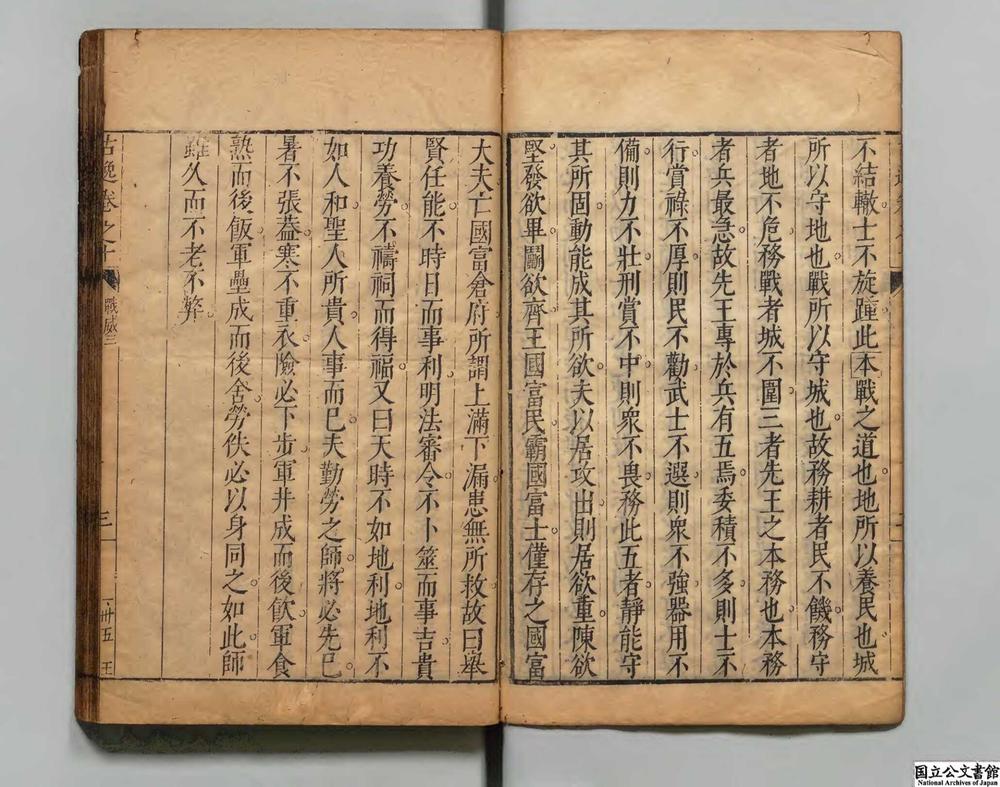 不結轍士不旋踵此本戰之道也地所以養民也城
所以守地也戰所以守城也故務耕者民不饑務守
者地不危務戰者城不圍三者先王之本務也本務
者兵最急故先王專於兵有五焉委積不多則士不
行賞祿不厚則民不勸武士不選則衆不強器用不
備則力不壯刑賞不中則衆不畏務此五者靜能守
其所固動能成其所欲夫以居攻出則居欲重陳欲
堅發欲畢鬭欲齊王國富民霸國富士僅存之國富
大夫亡國富倉府所謂上滿下漏患無所救故曰舉
賢任能不時日而事利明法審令不卜筮而事吉貴
功養勞不禱祠而得福又曰天時不如地利地利不
如人和聖人所貴人事而已夫勤勞之師將必先已
暑不張蓋寒不重衣險必下步軍井成而後飲軍食
熟而後飯軍壘成而後舍勞佚必以身同之如此師
雖久而不老不弊
古逸卷之十
戰威三
三
卅五
王
国立公文書館
National Archives of Japan